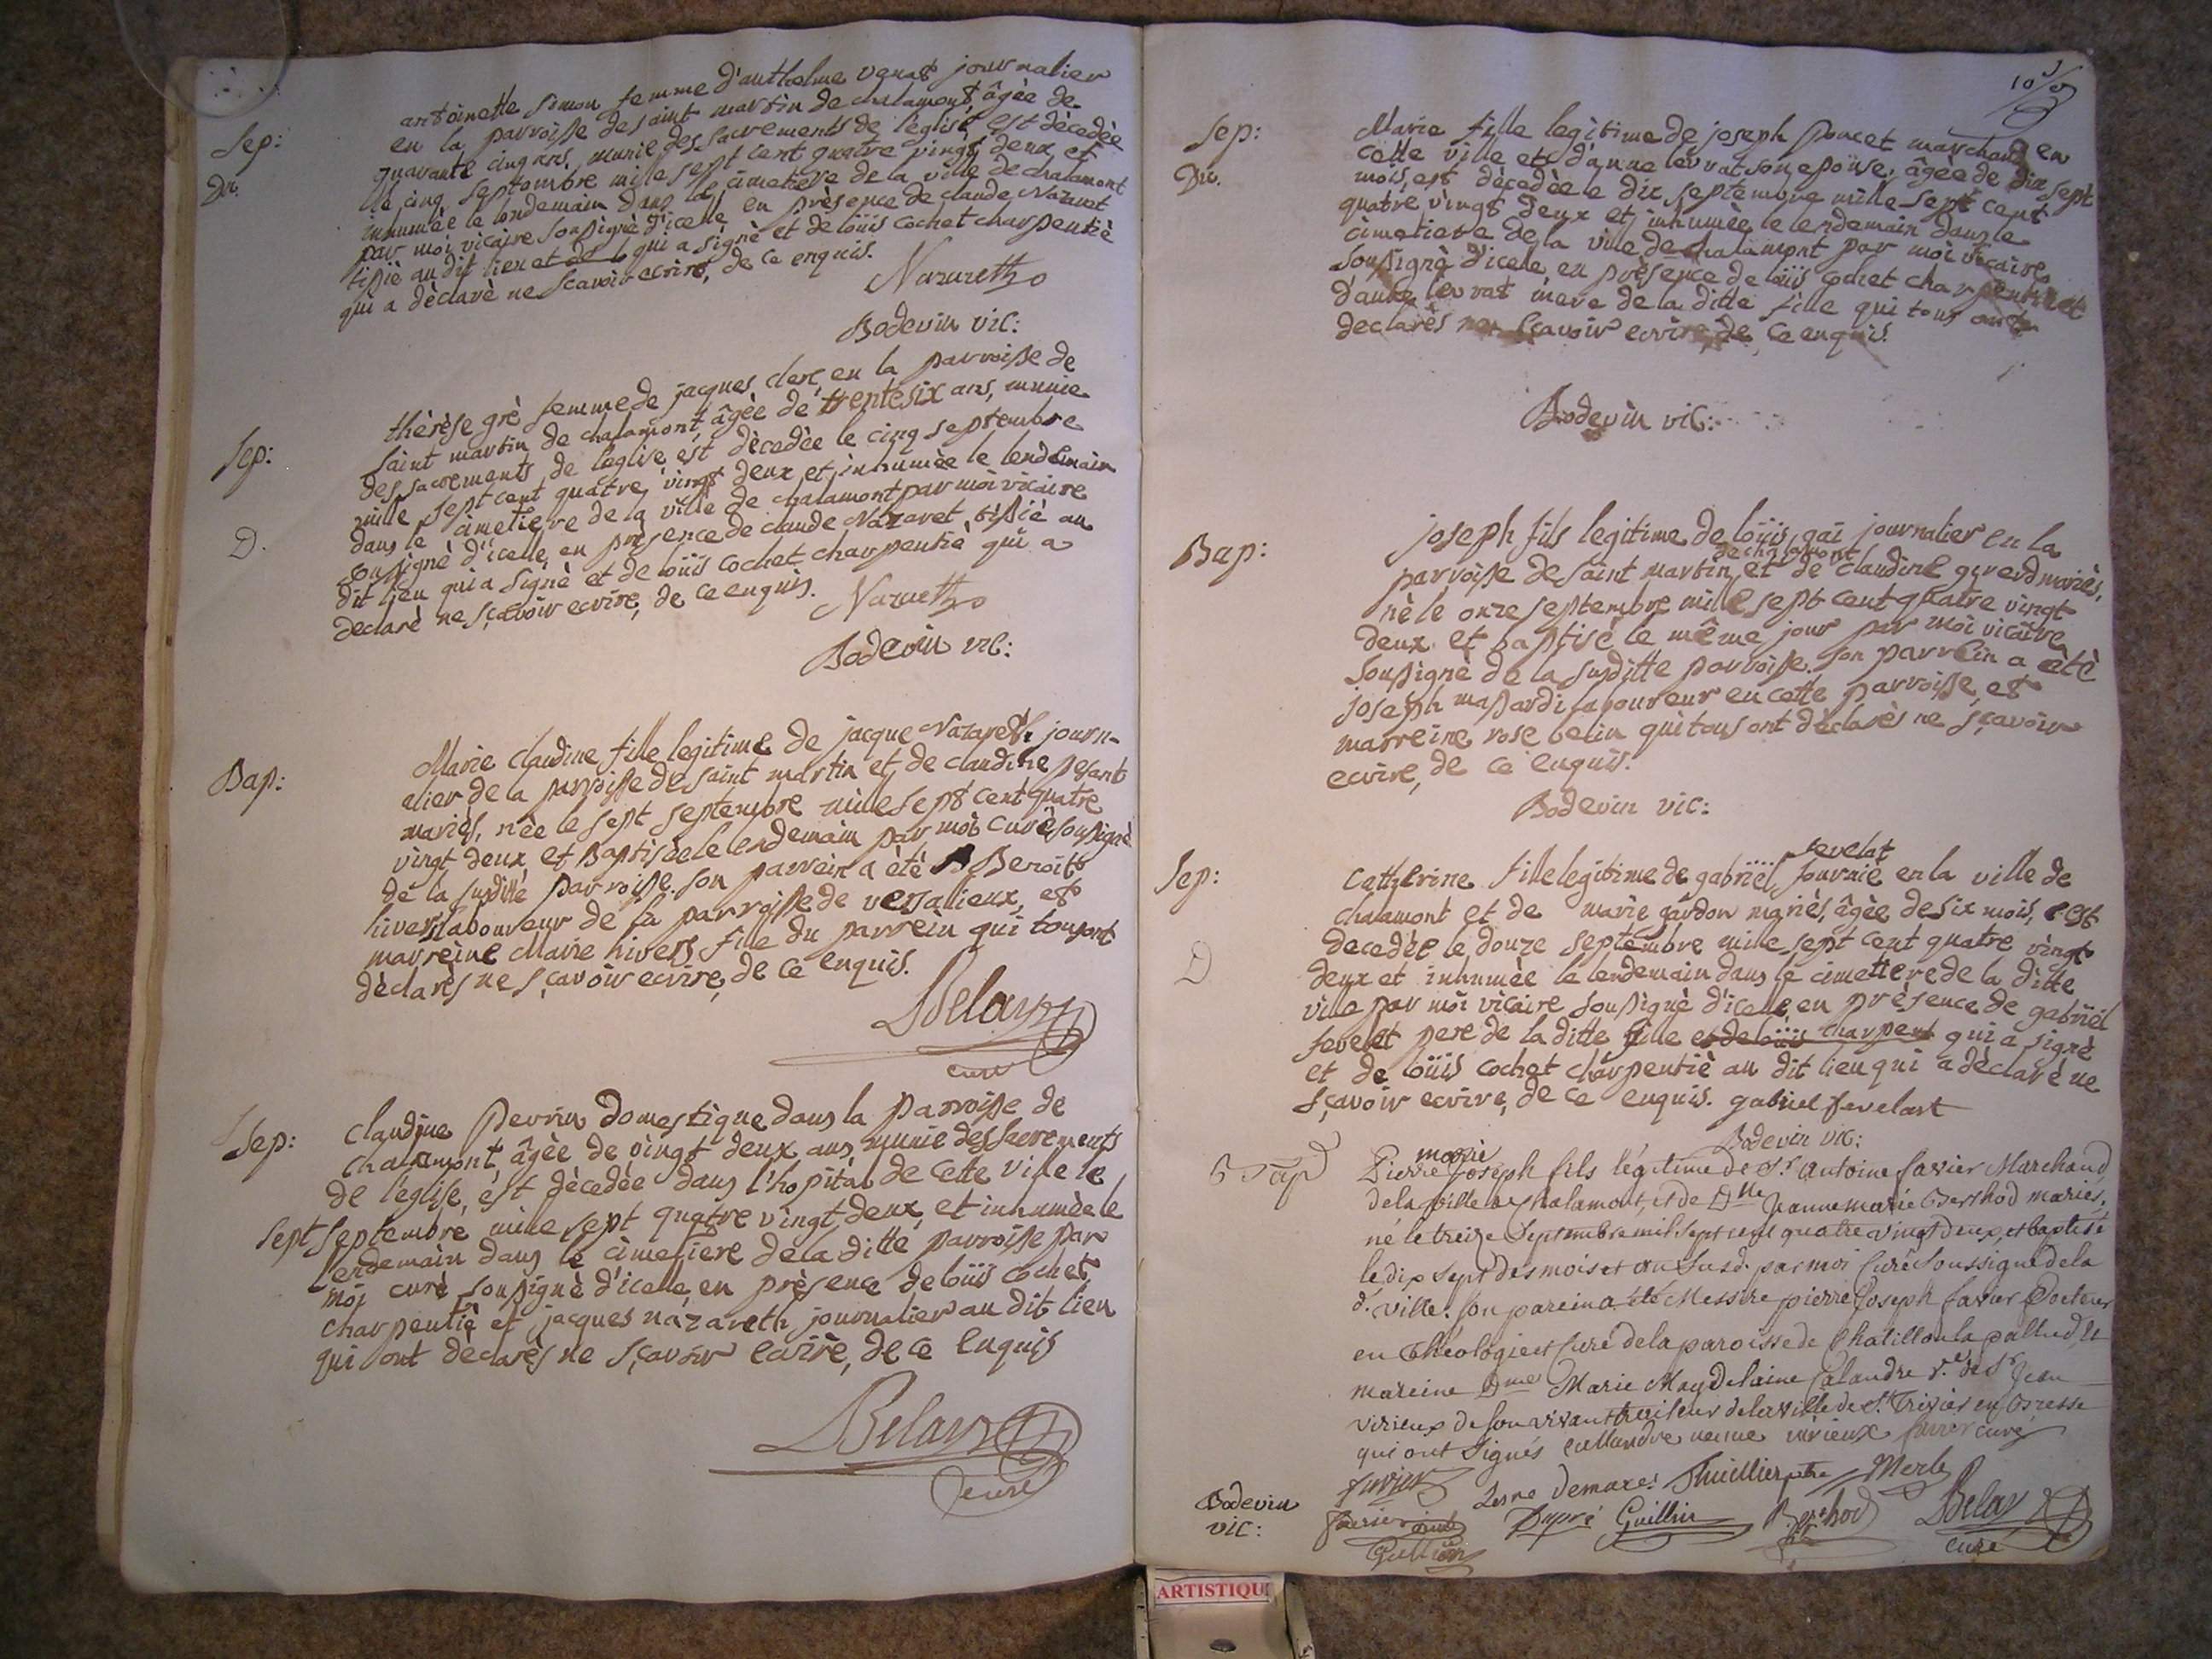 antoinette simon femme d'anthelme venat journalier
en la parroisse de saint martin de chalamont, âgèe de
Sep:
quarante cinq ans, munie des sacrements de l'église est dècedèe
Dr.
le cinq septembre mille sept cent quatre vingt deux et
inhumèe le lendemain dans le cimetiere de la ville de chalamont
par moi vicaire soussignè d'icelle en prèsence de claude Nazaret
tissiè au dit lieu et de l qui a signè et de loüis cochet charpentiè
qui a dèclarè ne sçavoir ecrire, de ce enquis.
Nazareth
Bodevin vic:
thèrèse grè femme de jacques clerc en la parroisse de
saint martin de chalamont, âgèe de trente six ans, munie
Sep:
des sacrements de l'eglise est dècedèe le cinq septembre
mille sept cent quatre vingt deux et inhumèe le lendemain
dans le cimetiere de la ville de chalamont par moi vicaire
D.
soussignè d'icelle en prèsence de claude Nazaret tissiè au
dit lieu qui a signè et de loüis cochet charpentiè qui a
declarè ne sçavoir ecrire, de ce enquis.
Nazareth
Bodevin vic:
Marie claudine fille legitime de jacque Nazareth journ-
Bap:
alier de la parroisse de saint martin et de claudine pesant
mariès, nèe le sept septembre mille sept cent quatre
vingt deux et Baptisèe le lendemain par moi curè soussignè
de la susditte parroisse. son parrein a ètè Benoit
hivers laboureur de la parroisse de versalieux, et
marreine Marie hivers fille du parrein qui tous ont
dèclarès ne sçavoir ecrire, de ce enquis.
Belay
curé
Sep:
claudine perrin domestique dans la parroisse de
chalamont, âgèe de vingt deux ans, munie des sacrements
de l'église, est dècedèe dans l'hopital de cette ville le
sept septembre mille sept quatre vingt deux et inhumèe le
lendemain dans le cimetiere de la ditte parroisse par
moi curè soussignè d'icelle en prèsence de loüis cochet
charpentiè et jacques nazareth journalier au dit lieu
qui ont dèclarès ne sçavoir ecrire, de ce enquis
Belay
curé
Sep:
Marie fille legitime de joseph poncet marchand en
Dr.
cette ville et d'anne levrat son epouse, âgèe de dix sept
mois, est dècedèe le dix septembre mille sept cent
quatre vingt deux et inhumèe le lendemain dans le
cimetiere de la ville de chalamont par moi vicaire
soussignè d'icelle en prèsence de loüis cochet charpentiè et
d'anne levrat mere de la ditte fille qui tous ont
declarès ne sçavoir ecrire, de ce enquis.
Bodevin vic:
Bap:
joseph fils legitime de loüis gai journalier en la
de chalamont
parroisse de saint martin et de claudine girerd mariès,
nè le onze septembre mille sept cent quatre vingt
deux et baptisè le même jour par moi vicaire
soussignè de la susditte parroisse. son parrein a ètè
joseph massardi laboureur en cette parroisse, et
marreine rose belin qui tous ont dèclarès ne sçavoir
ecrire, de ce enquis.
Bodevin vic:
Sep:
fevelat
Catherine fille legitime de gabriël fournie en la ville de
chalamont et de marie gardon mariès, âgèe de six mois, est
decedèe le douze septembre mille sept cent quatre vingt
D
deux et inhumèe le lendemain dans le cimettere de la ditte
ville par moi vicaire soussignè d'icelle, en prèsence de gabriël
fevelat pere de la ditte fille et de loüis charpent qui a signè
et de loüis cochet charpentiè au dit lieu qui a dèclarè ne
sçavoir ecrire, de ce enquis. gabriel fevelast
Bodevin vic:
Bap
marie
Pierre Joseph fils légitime de Sr. Antoine favier Marchand
de la ville de Chalamont, et de Dlle Jeanne marie Berthod mariés,
né le treize Septembre mil sept cent quatre vingt deux, et baptisé
le dix sept des mois et an susd. par moi Curé Soussigné de la
d. ville. son parein a été Messire pierre Joseph favier Docteur
en théologie et Curé de la paroisse de Chatillon la pallud, et
mareine Dme Marie Magdelaine Calandre ve. de Sr Jean
virieux de son vivant traiteur de la ville de St. Trivier en Bresse
qui ont Signés callandre veuve virieux favier curé
favier
Demares Thuillier ptre Merle
Bodevin
vic:
favier
Dupré Guillin Berthod Belay
Guillin
curé
ARTISTIQU